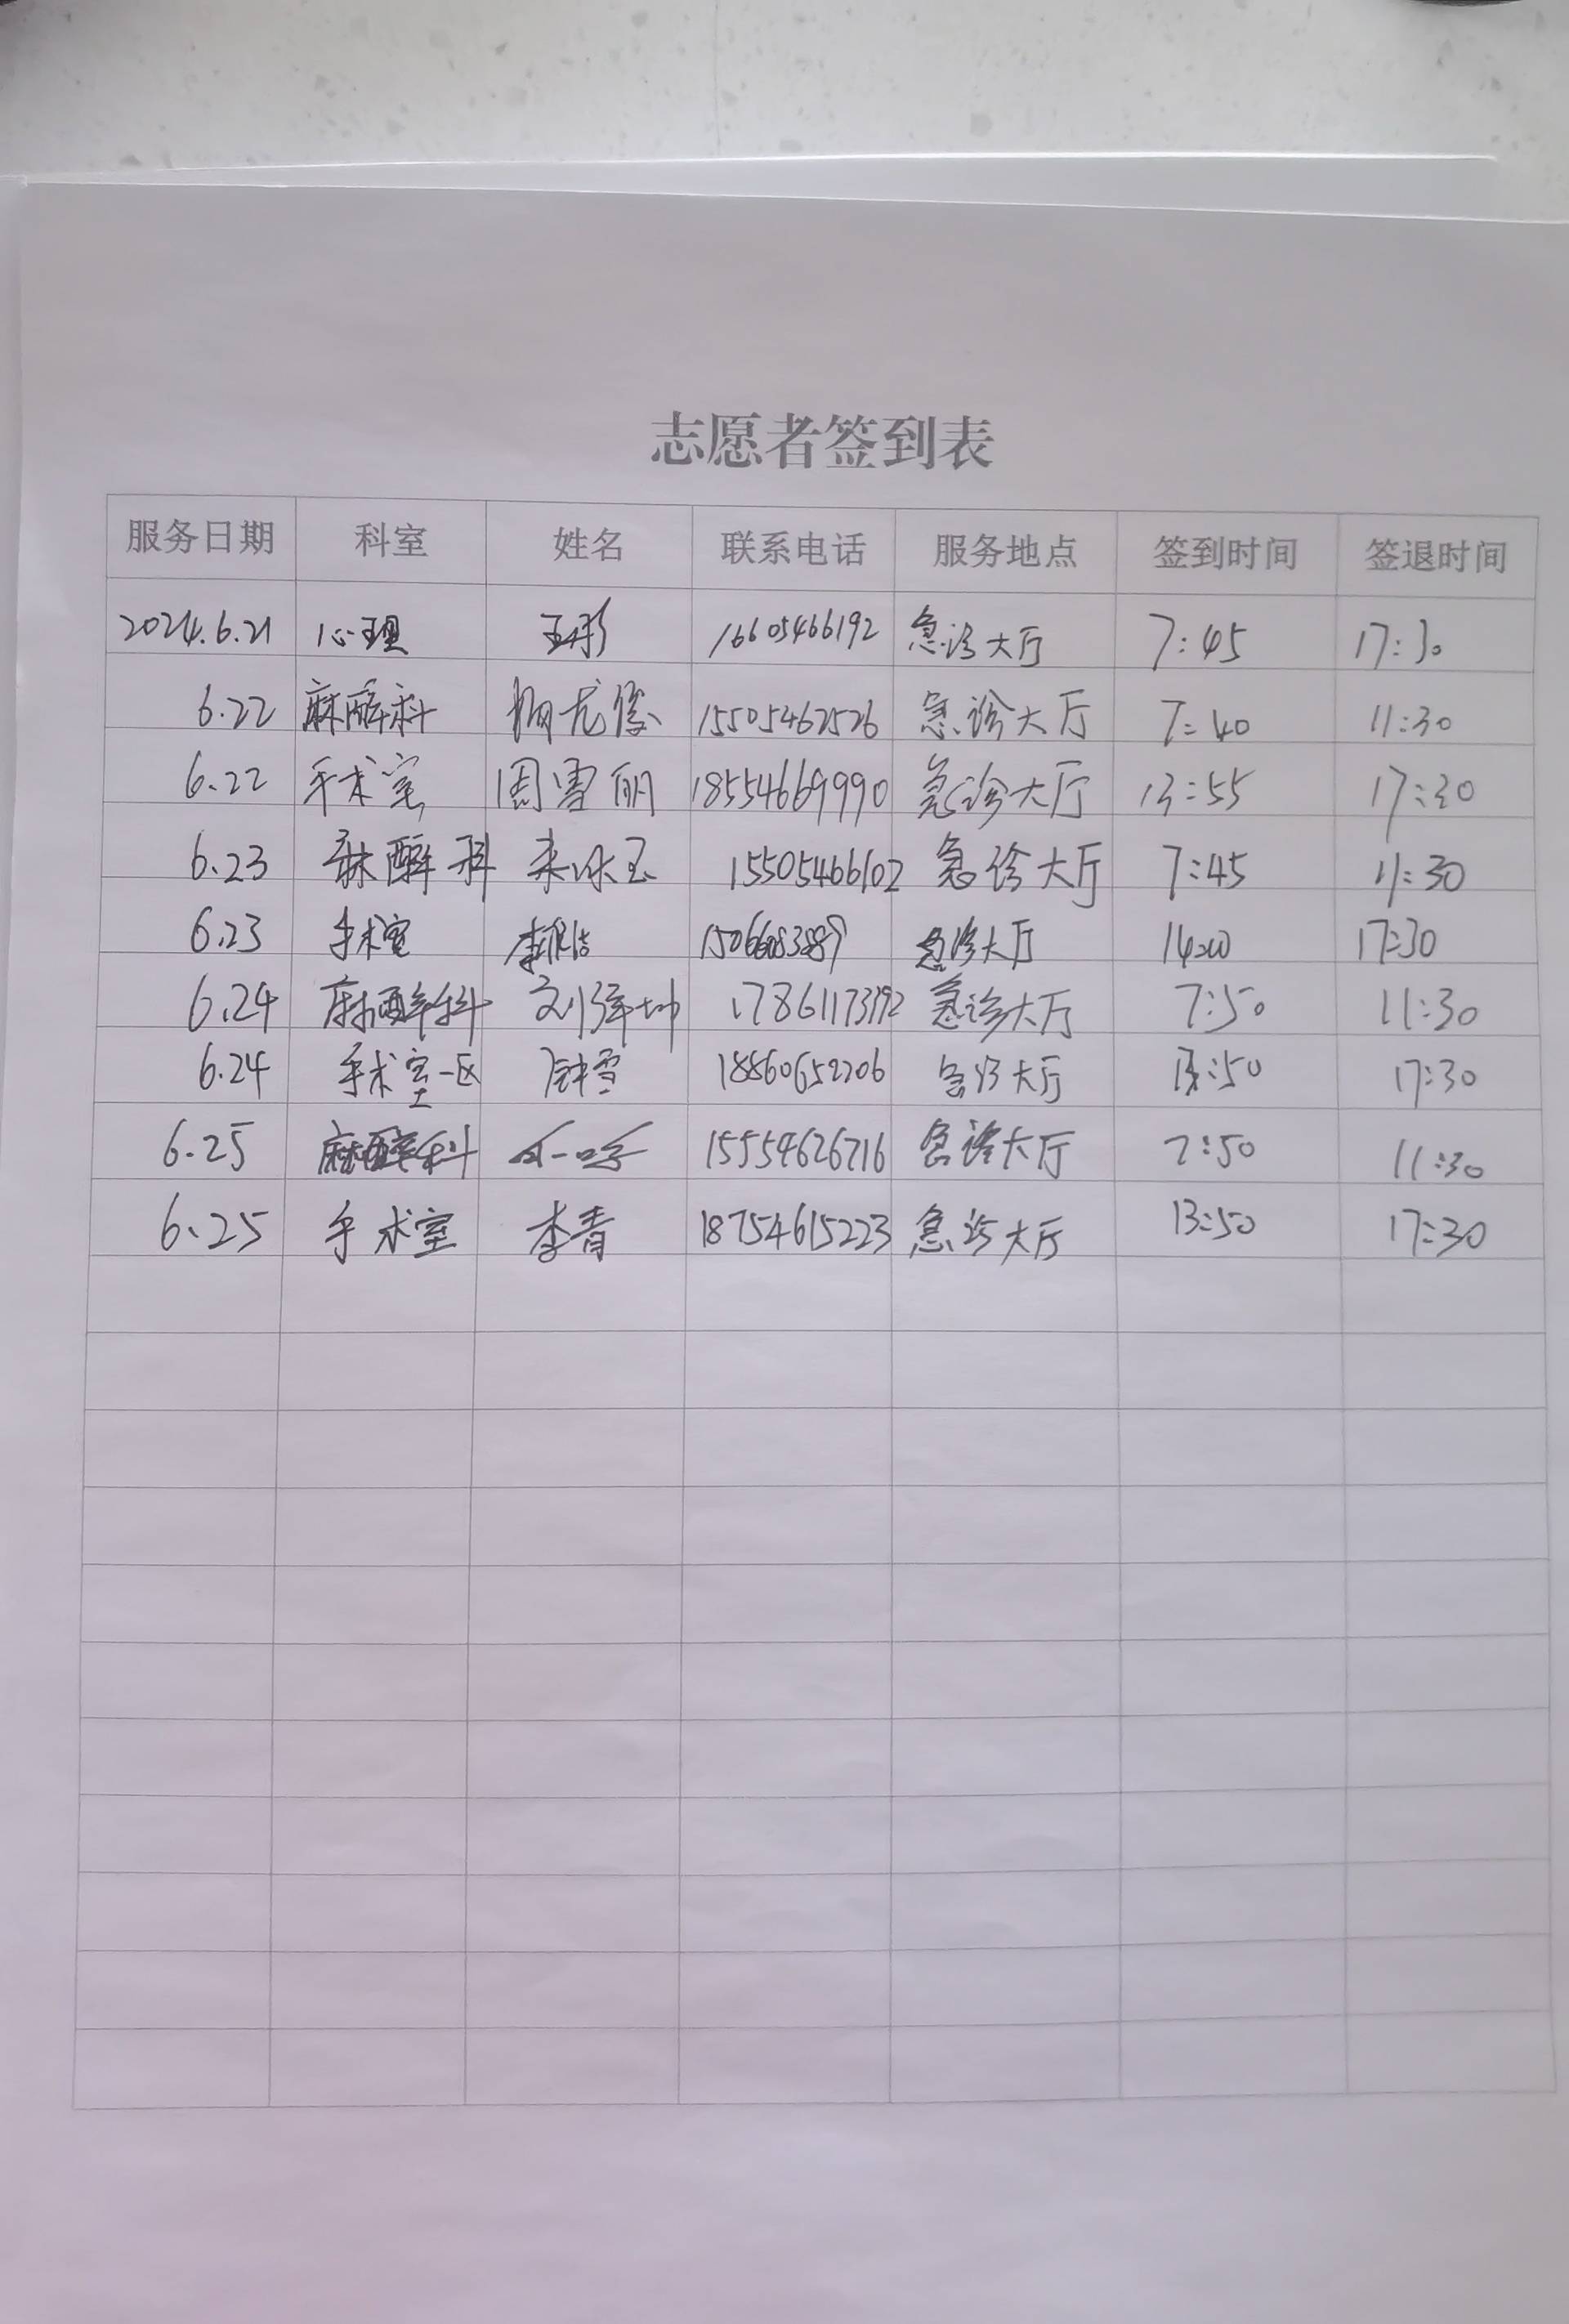 志愿者签到表
服务日期 科室 姓名 联系电话 服务地点 签到时间 签退时间
2024.6.21 心理 王彤 16605466192 急诊大厅 7:45 17:30
6.22 麻醉科 15505462526 急诊大厅 7:40 11:30
6.22 手术室 周雪丽 18554669990 急诊大厅 13:55 17:30
6.23 麻醉科 15505466102 急诊大厅 7:45 11:30
6.23 手术室 急诊大厅 14:00 17:30
6.24 麻醉科 17861173192 急诊大厅 7:50 11:30
6.24 手术室一区 18860652206 急诊大厅 13:50 17:30
6.25 麻醉科 15554626716 急诊大厅 7:50 11:30
6.25 手术室 李青 18754615223 急诊大厅 13:50 17:30